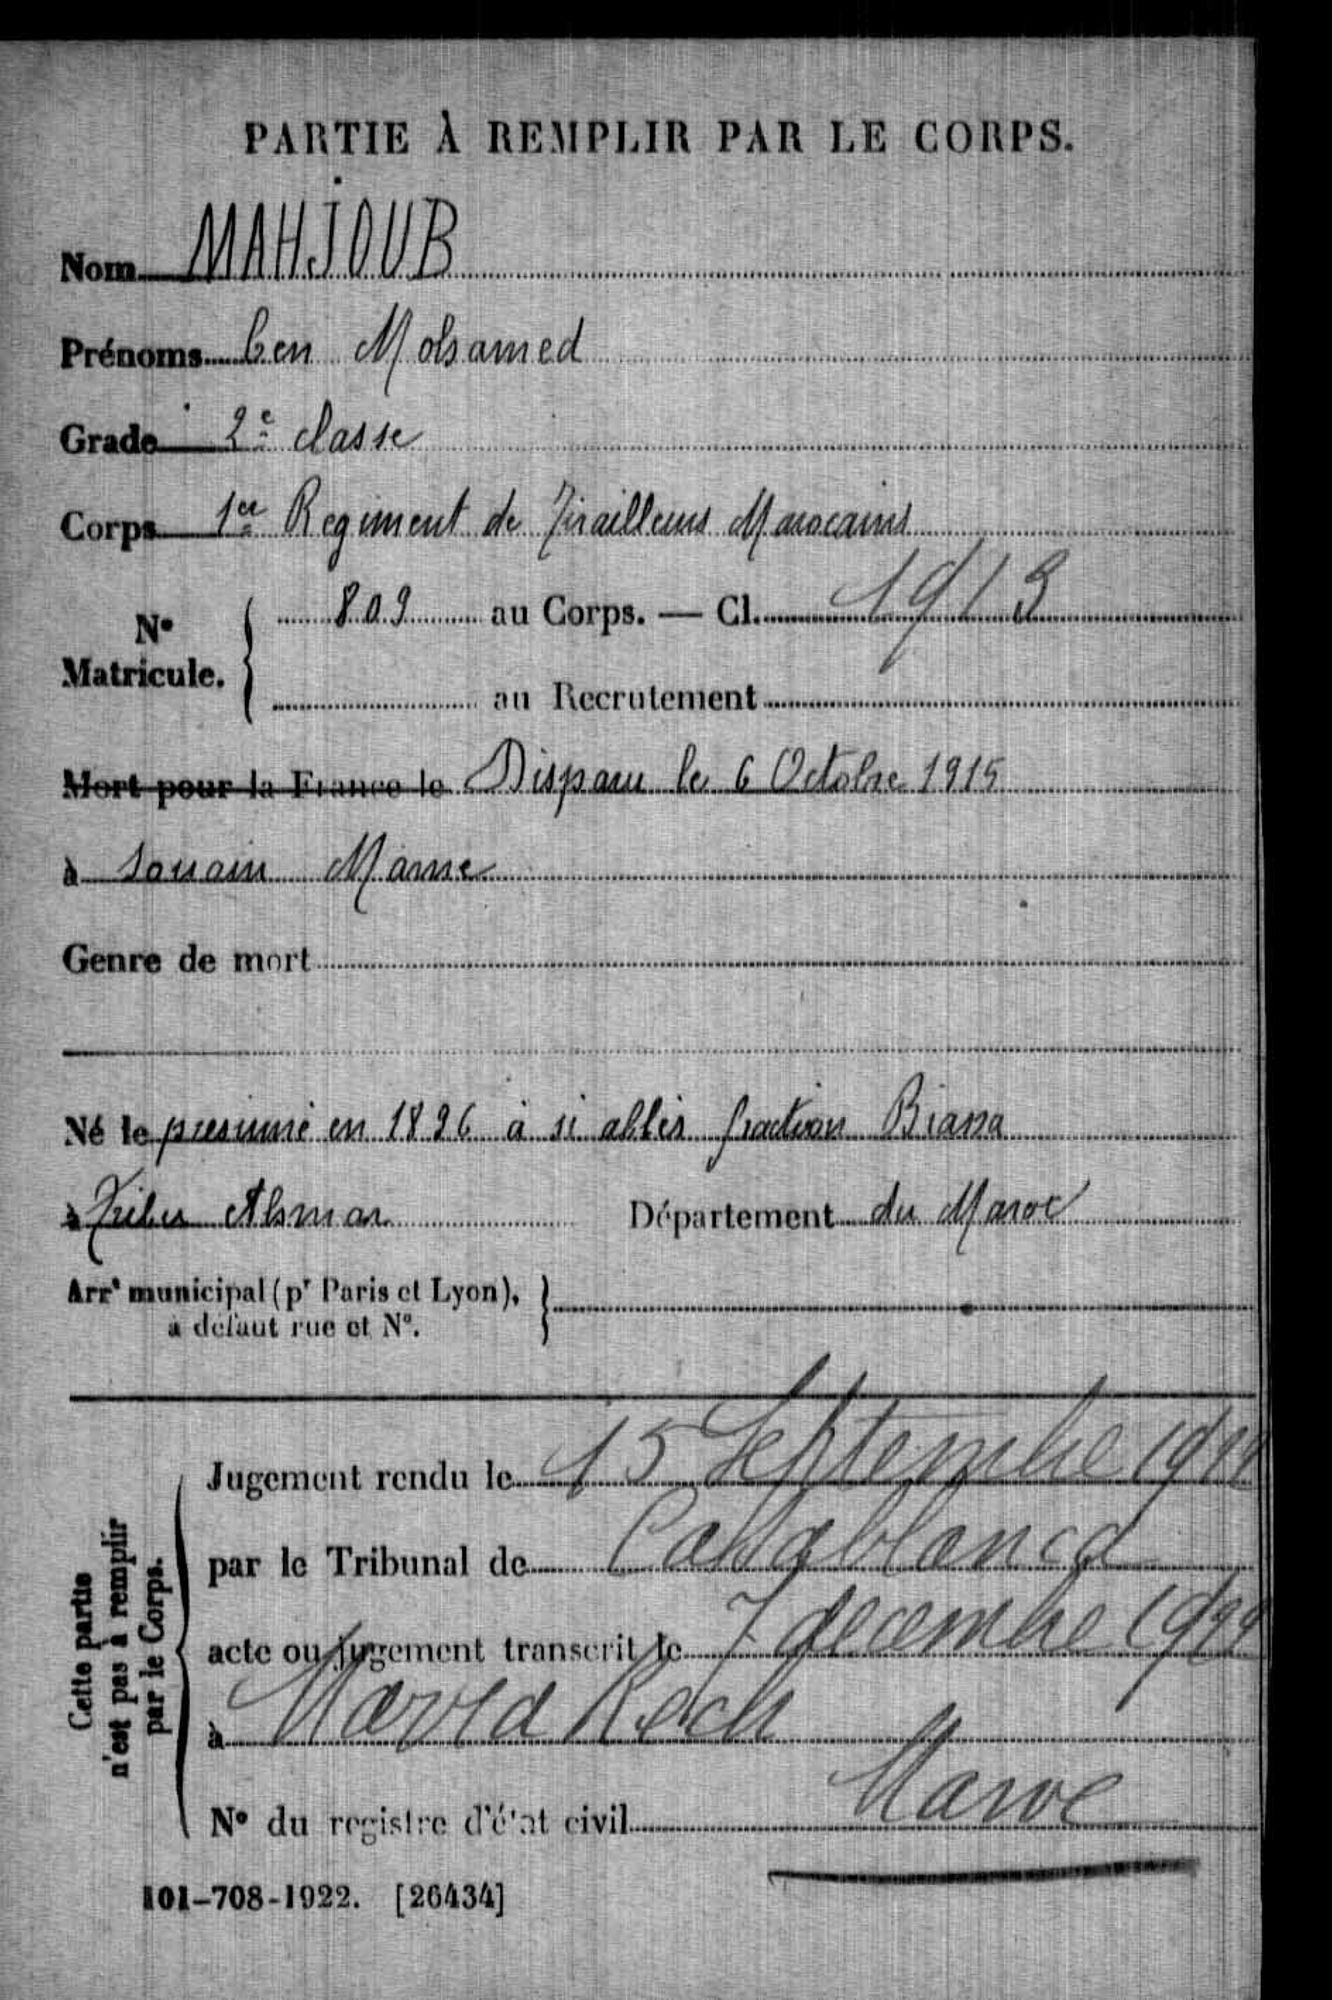 PARTIE À REMPLIR PAR LE CORPS.
Nom MAHJOUB
Prénoms ben Mohamed
Grade 2e classe
Corps 1er Regiment de Tirailleurs Marocains
No Matricule. 809 au Corps. — Cl. 1913
au Recrutement
Mort pour la France le Disparu le 6 Octobre 1915
à Souain Marne
Genre de mort
Né le présumé en 1896 à si fraction
à Tribu Département du Maroc
Arrt municipal (pr Paris et Lyon),
à défaut rue et No.
Cette partie
n'est pas à remplir
par le Corps.
Jugement rendu le 15 Septembre
par le Tribunal de Casablanca
acte ou jugement transcrit le 7 decembre
à
No du registre d'état civil Maroc
101-708-1922. [26434]